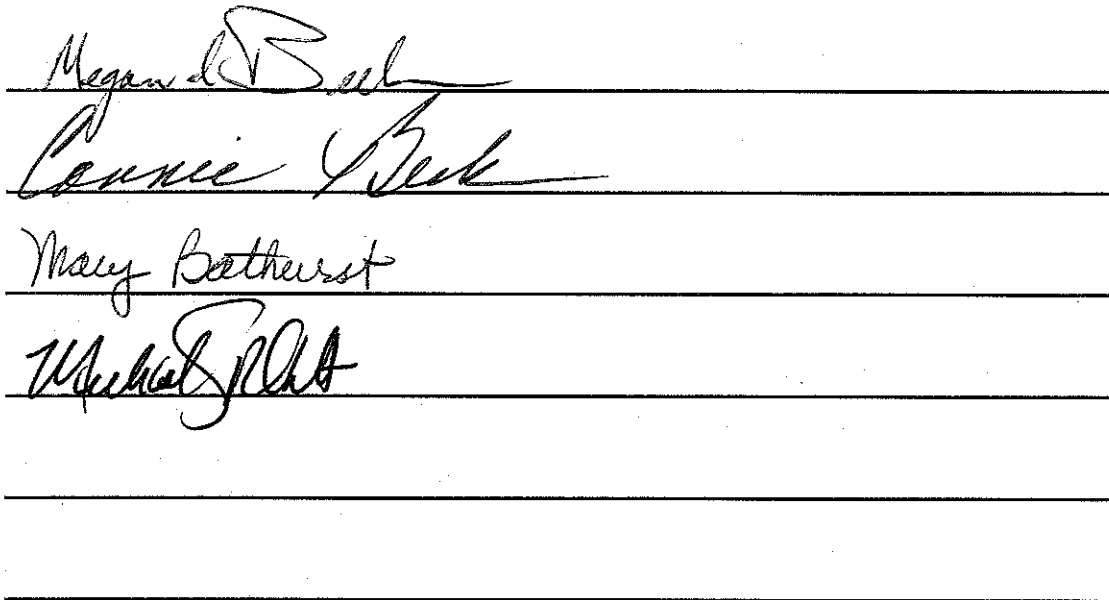 Megan
Connie Y Beck
Mary Bathurst
Michael J